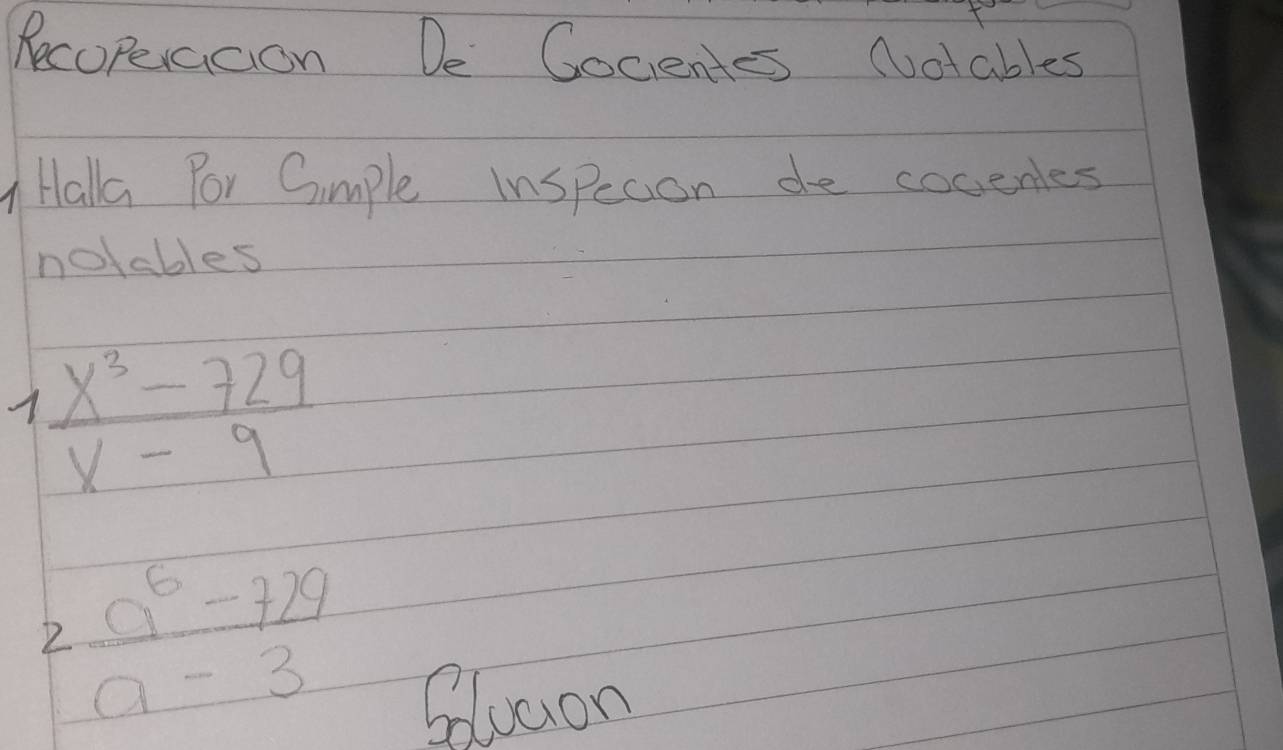 Recuperacion De Cocientes Notables
1 Halla Por Simple inspecion de cocientes
notables
1 x³ - 729
x - 9
2 a⁶ - 729
a - 3
Solucion